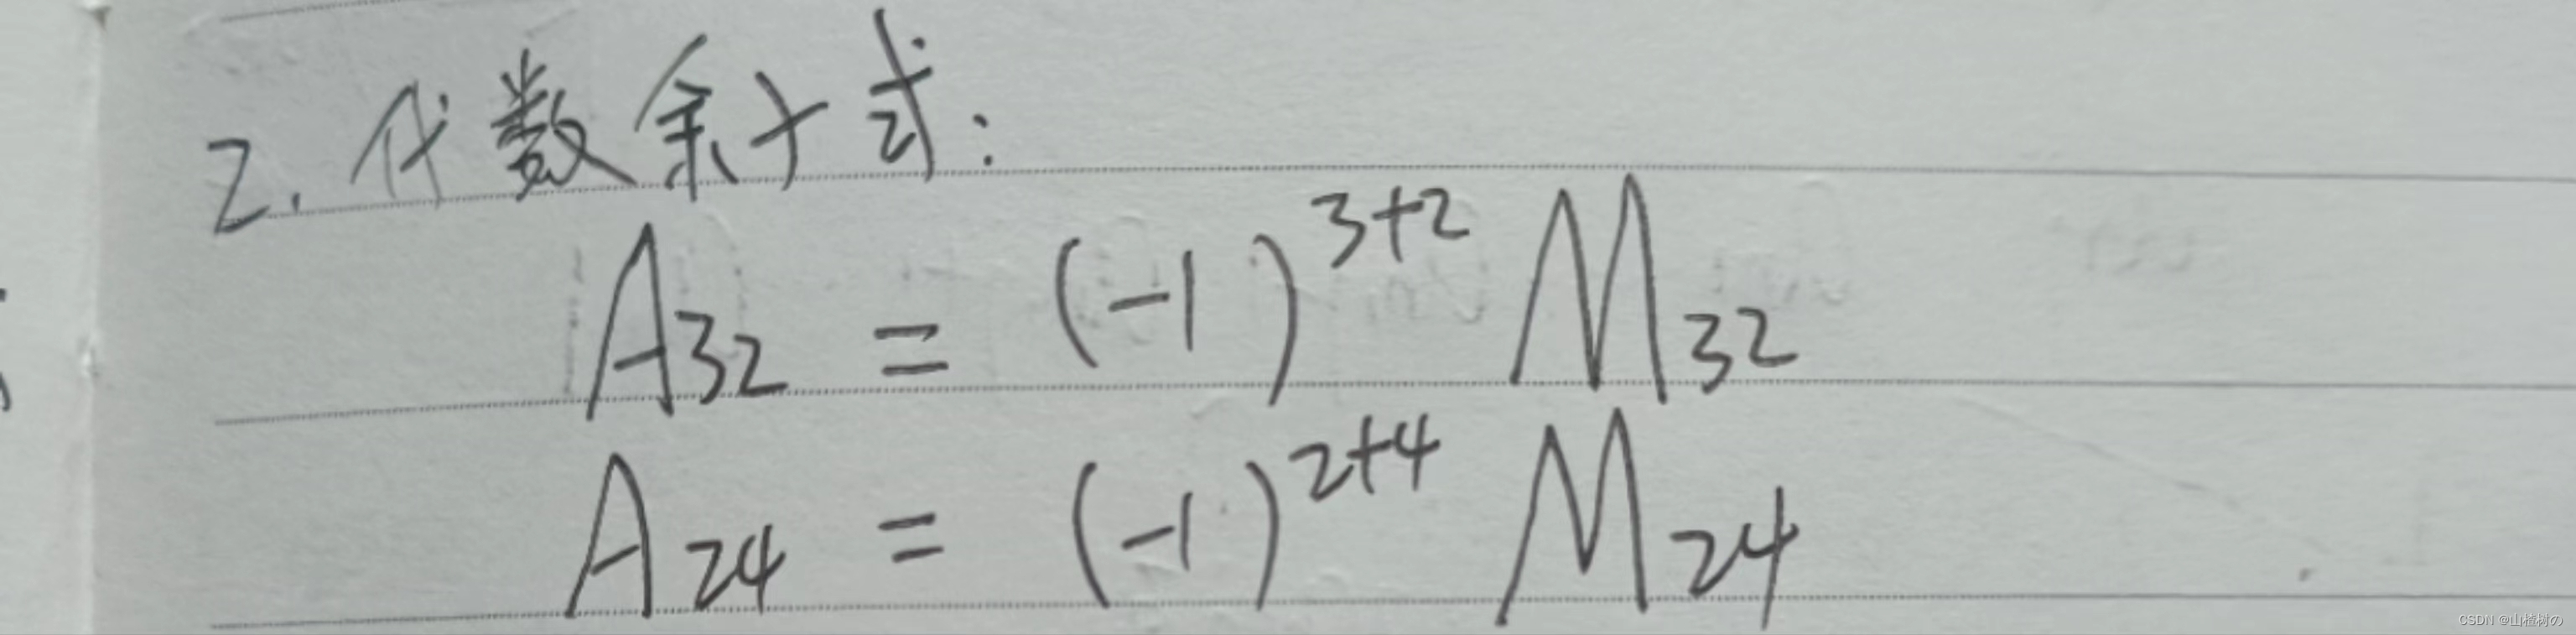 2. 代数余子式:
A₃₂ = (-1)³⁺² M₃₂
A₂₄ = (-1)²⁺⁴ M₂₄
CSDN @山楂树の